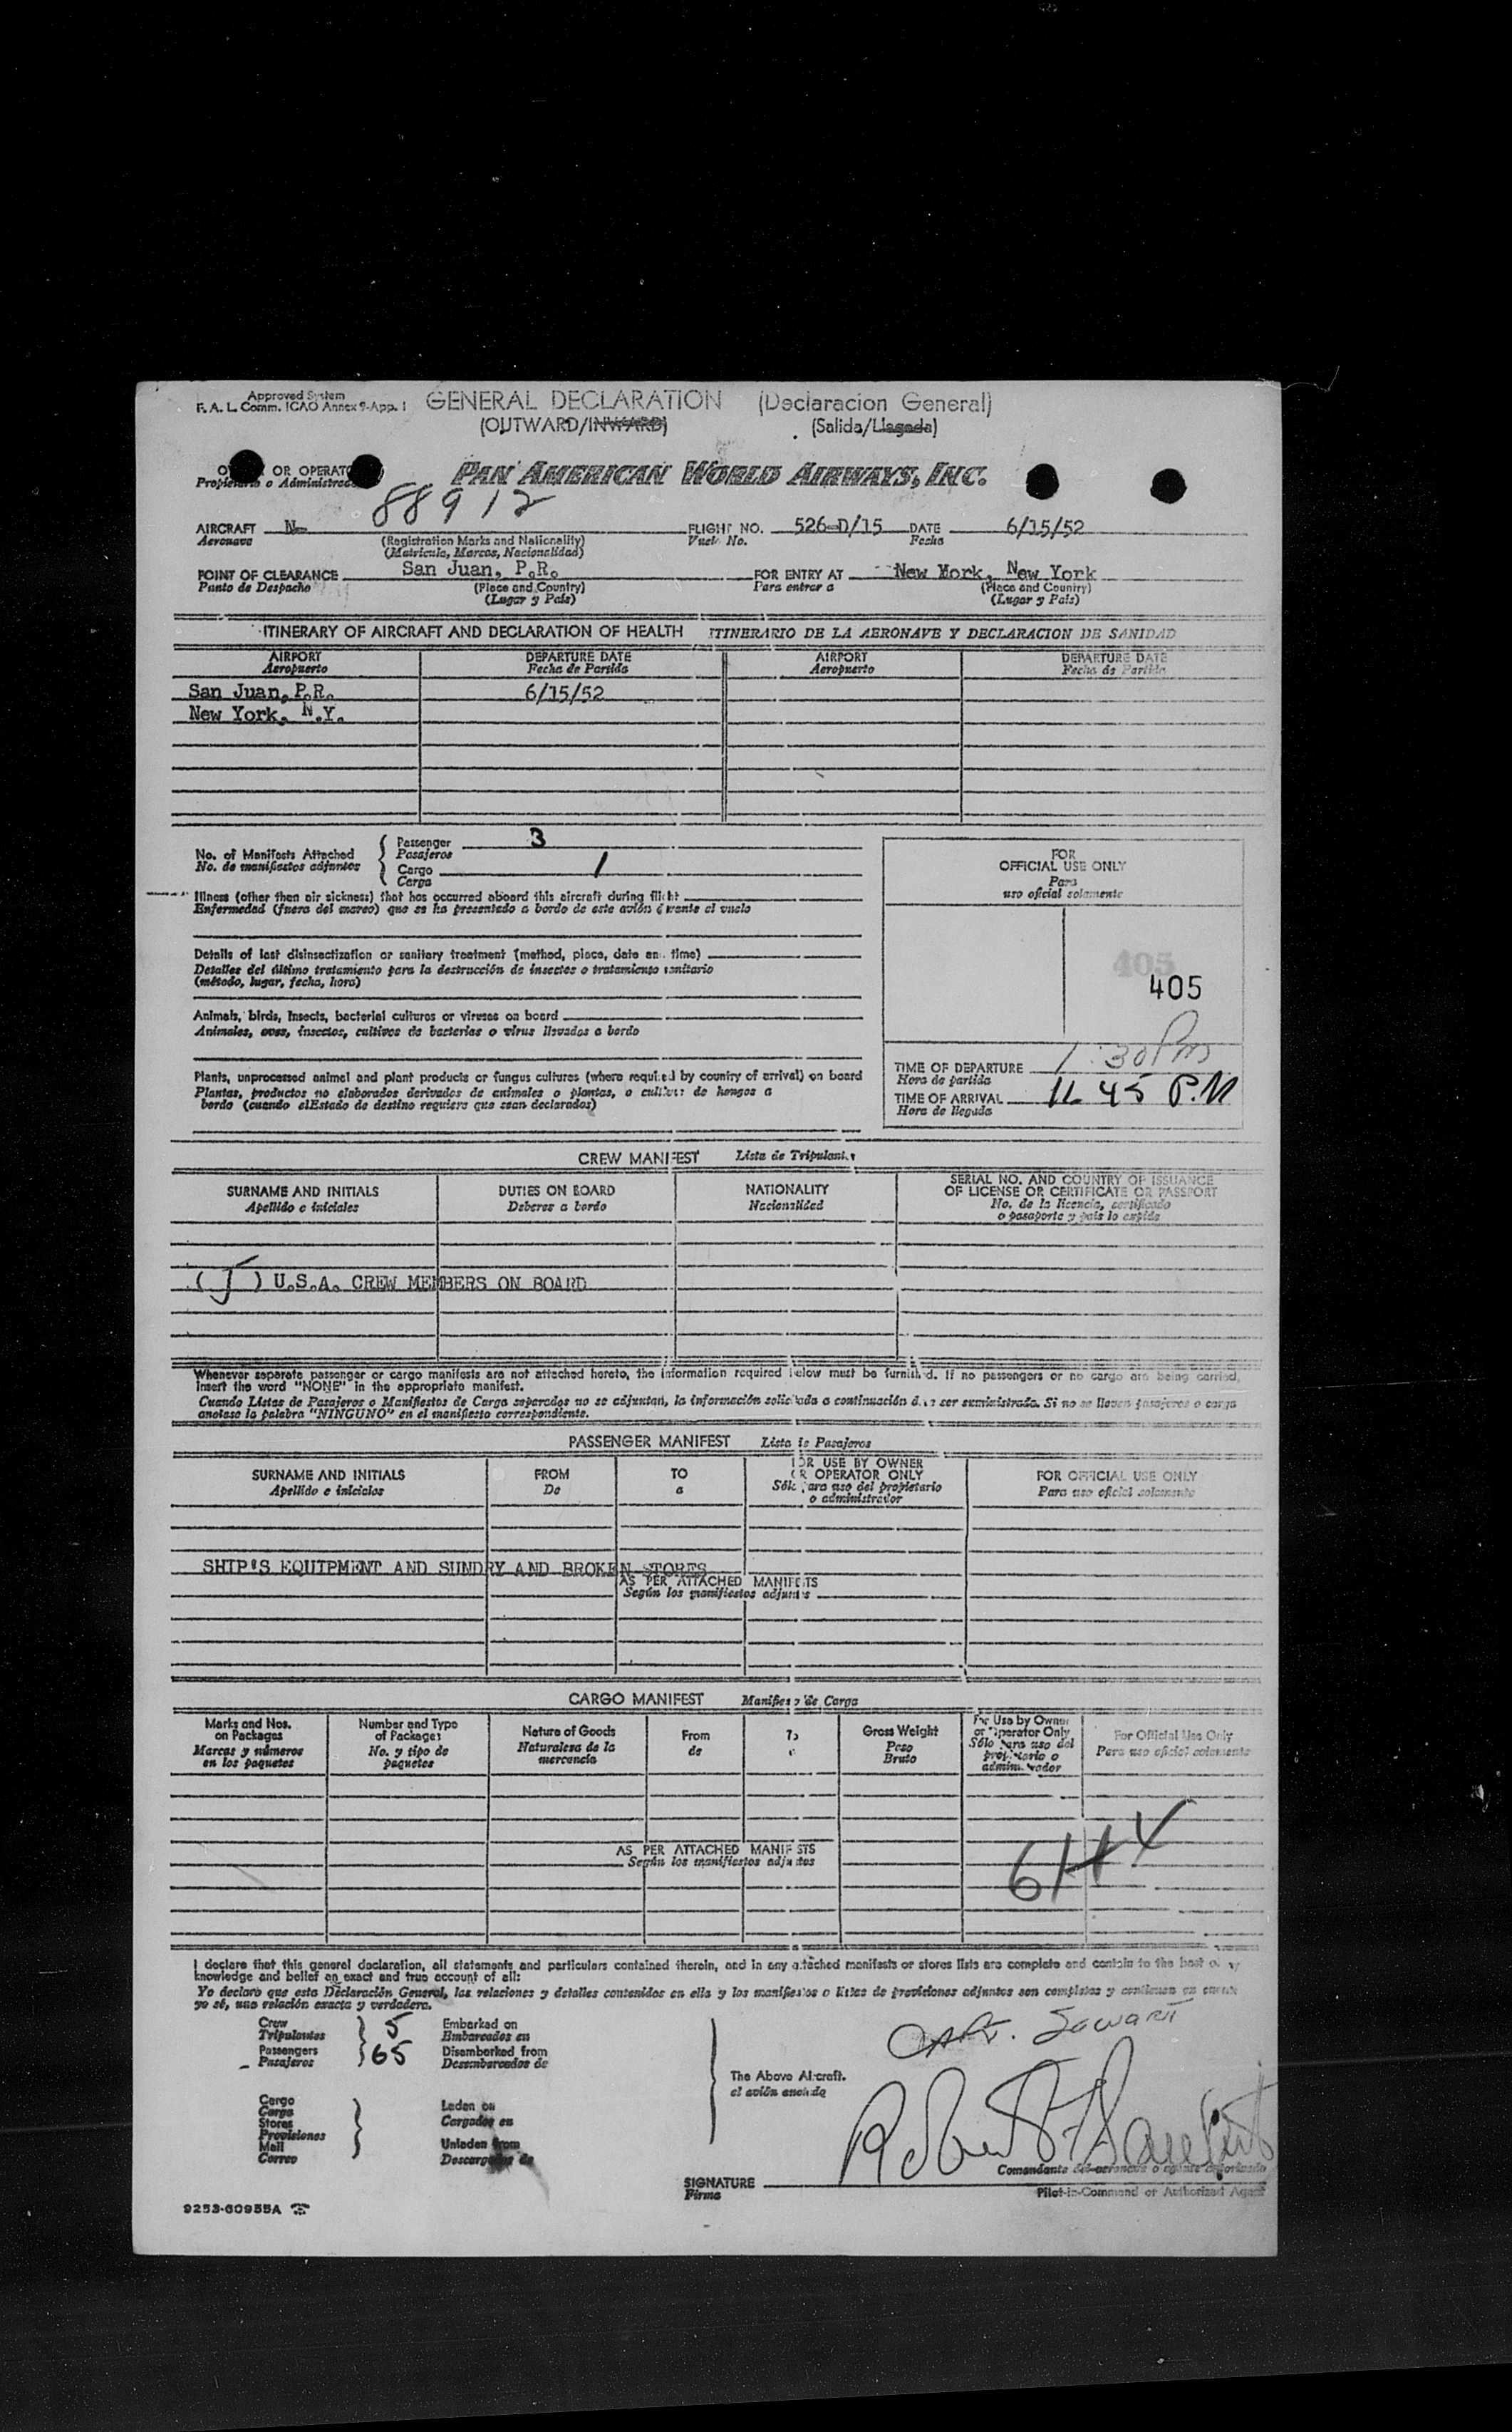 Approved System
F. A. L. Comm. ICAO Annex 9-App. 1
GENERAL DECLARATION (Declaracion General)
(OUTWARD/INWARD) (Salida/Llagada)
OR OPERATO
Propietario o Administrador
PAN AMERICAN WORLD AIRWAYS, INC.
88912
AIRCRAFT N- FLIGHT NO. 526-D/15 DATE 6/15/52
Aeronave (Registration Marks and Nationality) Vuelo No. Fecha
(Matricula, Marcas, Nacionalidad)
POINT OF CLEARANCE San Juan, P.R. FOR ENTRY AT New York, New York
Punto de Despacho (Place and Country) Para entrar a (Place and Country)
(Lugar y Pais) (Lugar y Pais)
ITINERARY OF AIRCRAFT AND DECLARATION OF HEALTH ITINERARIO DE LA AERONAVE Y DECLARACION DE SANIDAD
AIRPORT DEPARTURE DATE AIRPORT DEPARTURE DATE
Aeropuerto Fecha de Partida Aeropuerto Fecha de Partida
San Juan, P.R. 6/15/52
New York, N.Y.
No. of Manifests Attached
No. de manifiestos adjuntos
Passenger 3
Pasajeros
Cargo 1
Carga
FOR
OFFICIAL USE ONLY
Para
uso oficial solamente
Illness (other than air sickness) that has occurred aboard this aircraft during flight
Enfermedad (fuera del mareo) que se ha presentado a bordo de este avión durante el vuelo
Details of last disinsectization or sanitary treatment (method, place, date and time)
Detalles del último tratamiento para la destrucción de insectos o tratamiento sanitario
(método, lugar, fecha, hora)
405
405
Animals, birds, insects, bacterial cultures or viruses on board
Animales, aves, insectos, cultivos de bacterias o virus llevados a bordo
Plants, unprocessed animal and plant products or fungus cultures (where required by country of arrival) on board
Plantas, productos no elaborados derivados de animales o plantas, o cultivos de hongos a
bordo (cuando elEstado de destino requiere que sean declarados)
TIME OF DEPARTURE 1:30 Pm
Hora de partida
TIME OF ARRIVAL 11 45 P.M
Hora de llegada
CREW MANIFEST Lista de Tripulantes
SURNAME AND INITIALS DUTIES ON BOARD NATIONALITY SERIAL NO. AND COUNTRY OF ISSUANCE
OF LICENSE OR CERTIFICATE OR PASSPORT
Apellido e iniciales Deberes a bordo Nacionalidad No. de la licencia, certificado
o pasaporte y pais lo expide
(5) U.S.A. CREW MEMBERS ON BOARD
Whenever separate passenger or cargo manifests are not attached hereto, the information required below must be furnished. If no passengers or no cargo are being carried,
insert the word "NONE" in the appropriate manifest.
Cuando Listas de Pasajeros o Manifiestos de Carga separados no se adjuntan, la información solicitada a continuación debe ser suministrada. Si no se llevan pasajeros o carga
anotase la palabra "NINGUNO" en el manifiesto correspondiente.
PASSENGER MANIFEST Lista de Pasajeros
SURNAME AND INITIALS FROM TO FOR USE BY OWNER
OR OPERATOR ONLY FOR OFFICIAL USE ONLY
Apellido e iniciales De a Sólo para uso del propietario
o administrador Para uso oficial solamente
SHIP'S EQUIPMENT AND SUNDRY AND BROKEN STORES
AS PER ATTACHED MANIFESTS
Según los manifiestos adjuntos
CARGO MANIFEST Manifiesto de Carga
Marks and Nos.
on Packages
Marcas y números
en los paquetes
Number and Type
of Packages
No. y tipo de
paquetes
Nature of Goods
Naturaleza de la
mercancia
From
de
To
a
Gross Weight
Peso
Bruto
For Use by Owner
or Operator Only
Sólo para uso del
propietario o
administrador
For Official Use Only
Para uso oficial solamente
AS PER ATTACHED MANIFESTS
Según los manifiestos adjuntos
I declare that this general declaration, all statements and particulars contained therein, and in any attached manifests or stores lists are complete and contain to the best of my
knowledge and belief an exact and true account of all:
Yo declaro que esta Declaración General, las relaciones y detalles contenidos en ella y los manifiestos o listas de provisiones adjuntos son completos y contienen en cuanto
yo sé, una relación exacta y verdadera.
Crew 5 Embarked on
Tripulantes Embarcados en
Passengers 65 Disembarked from
Pasajeros Desembarcados de
CAPT.
The Above Aircraft.
el avión
Cargo
Carga
Stores
Provisiones
Mail
Correo
Laden on
Cargados en
Unladen from
Descargados de
Robert
SIGNATURE
Firma
Comandante del aeronave o agente autorizado
Pilot-in-Command or Authorized Agent
9253-60955A